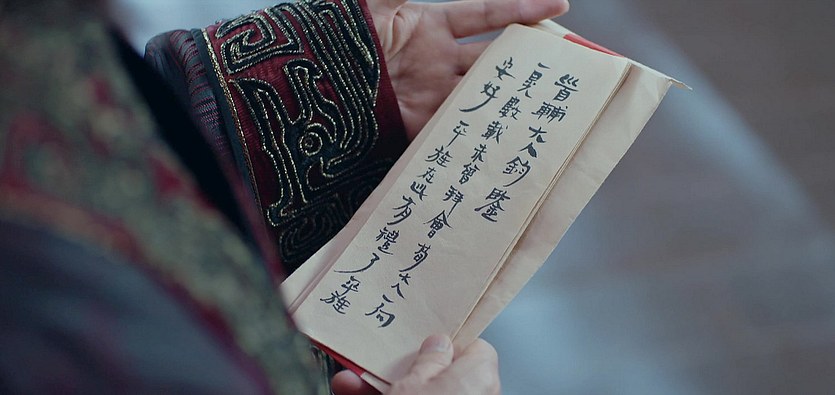 首輔大人鈞鑒
一晃數載未曾拜會荀大人一向
安好平旌在此有禮了平旌